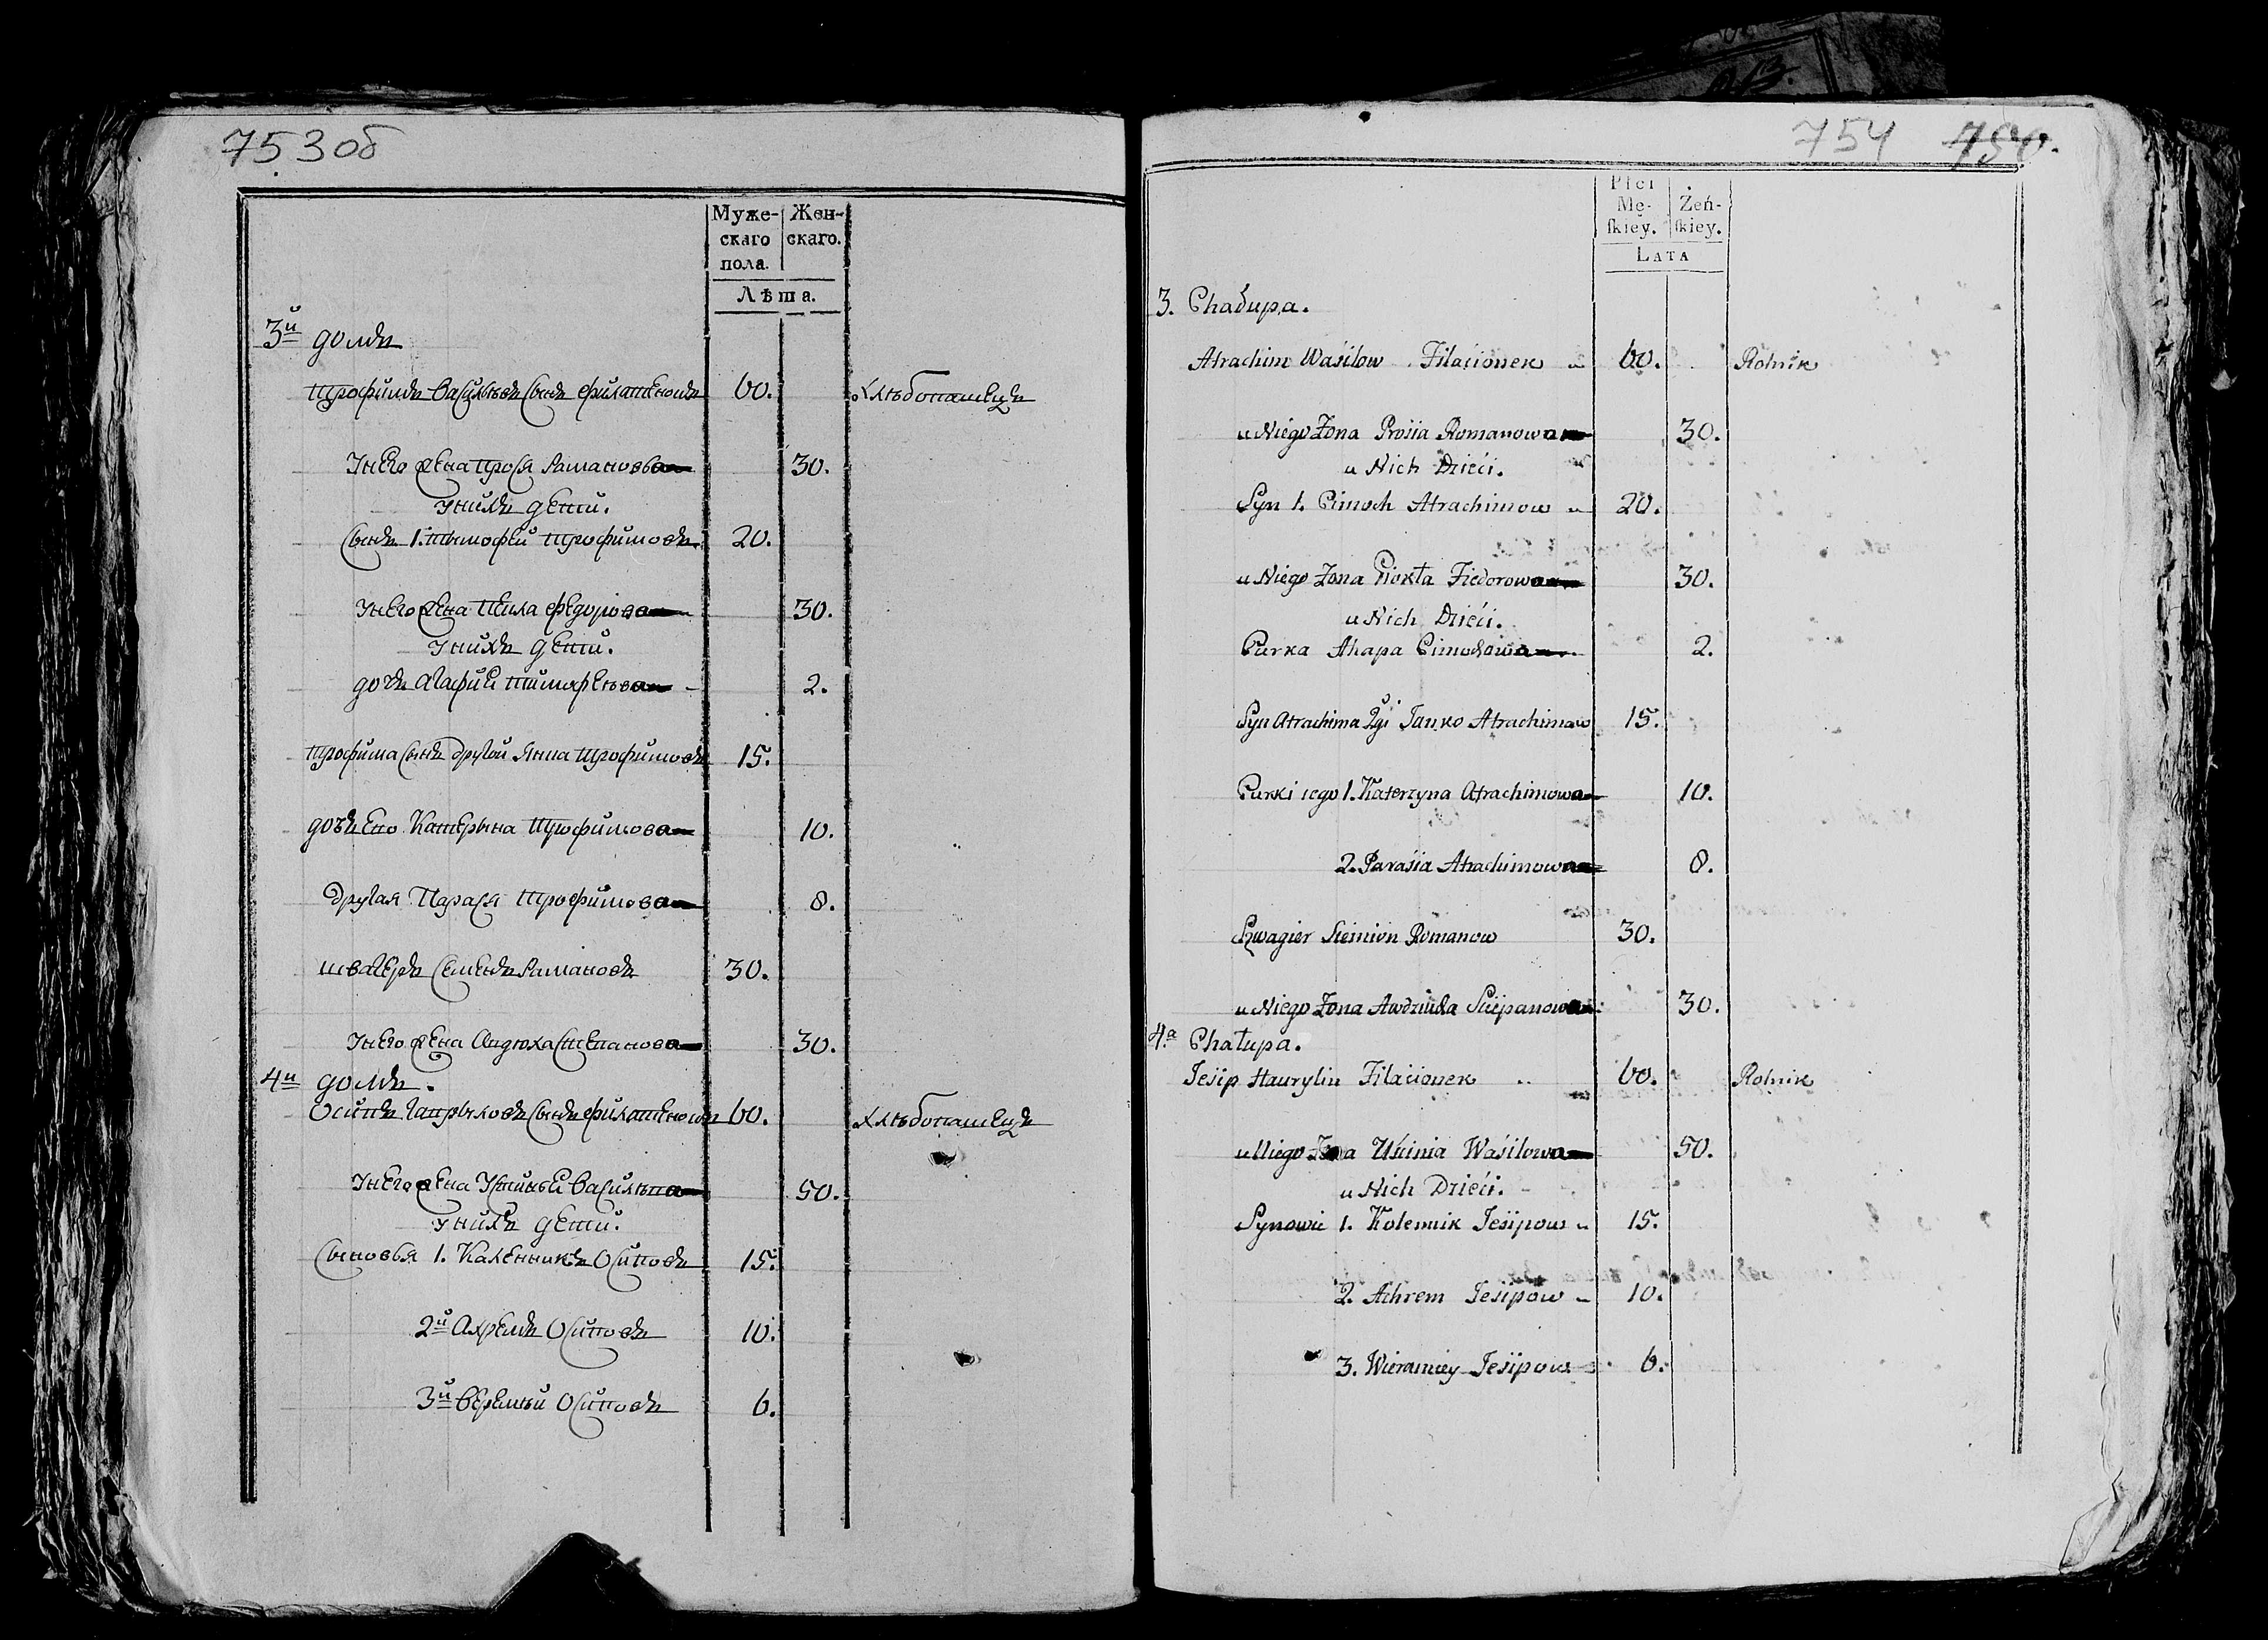 753об
Муже-
скаго
пола.
Жен-
скаго.
Лѣта.
3й домъ
Трофимъ Васильевъ сынъ Филатенокъ 60. Хлѣбопашецъ
У него жена Прося Раманова 30.
У нихъ дети.
Сынъ 1. Тымофей Трофимовъ 20.
У него жена Федорова 30.
У нихъ дети.
дочь Агафия Тимофеева 2.
Трофима сынъ другой Трофимовъ 15.
дочь Его Катерына Трофимова 10.
другая Парася Трофимова 8.
швагеръ Семенъ Рамановъ 30.
У него жена Авдюха Степанова 30.
4й домъ.
Осипъ Гаврыловъ сынъ Филатенокъ 60. Хлѣбопашецъ
У него жена 50.
У нихъ дети.
Сыновья 1. Каленникъ Осиповъ 15.
2й Ахремъ Осиповъ 10.
3й Веремей Осиповъ 6.
754 750.
Płci
Mę-
skiey.
Żeń-
skiey.
LATA
3. Chałupa.
Atrachim Wasilow Filacionek 60. Rolnik
u Niego Zona Prosia Romanowa 30.
u Nich Dzieci.
Syn 1. Cimoch Atrachimow 20.
u Niego Zona Fiedorowa 30.
u Nich Dzieci.
Curka Ahapa Cimochowa 2.
Syn Atrachima 2gi Janko Atrachimow 15.
Curki iego 1. Katerzyna Atrachimowa 10.
2. Parasia Atrachimowa 8.
Szwagier Siemion Romanow 30.
u Niego Zona Awdziucha Sciepanowa 30.
4a Chałupa.
Jesip Haurylin Filacionek 60. Rolnik
u Niego Zona Uscinia Wasilowa 50.
u Nich Dzieci.
Synowie 1. Kolennik Jesipow 15.
2. Achrem Jesipow 10.
3. Wieramiey Jesipow 6.